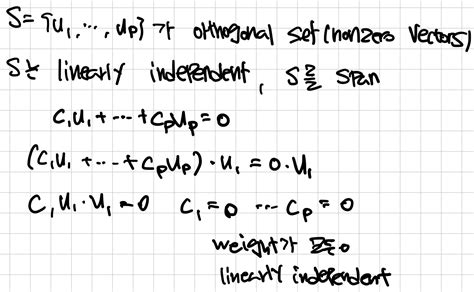 S={u₁, ⋯, uₚ}가 orthogonal set(nonzero vectors)
S는 linearly independent, S로 span
c₁u₁+⋯+cₚuₚ=0
(c₁u₁+⋯+cₚuₚ)·u₁=0·u₁
c₁u₁·u₁=0 c₁=0 ⋯ cₚ=0
weight가 모두 0
linearly independent